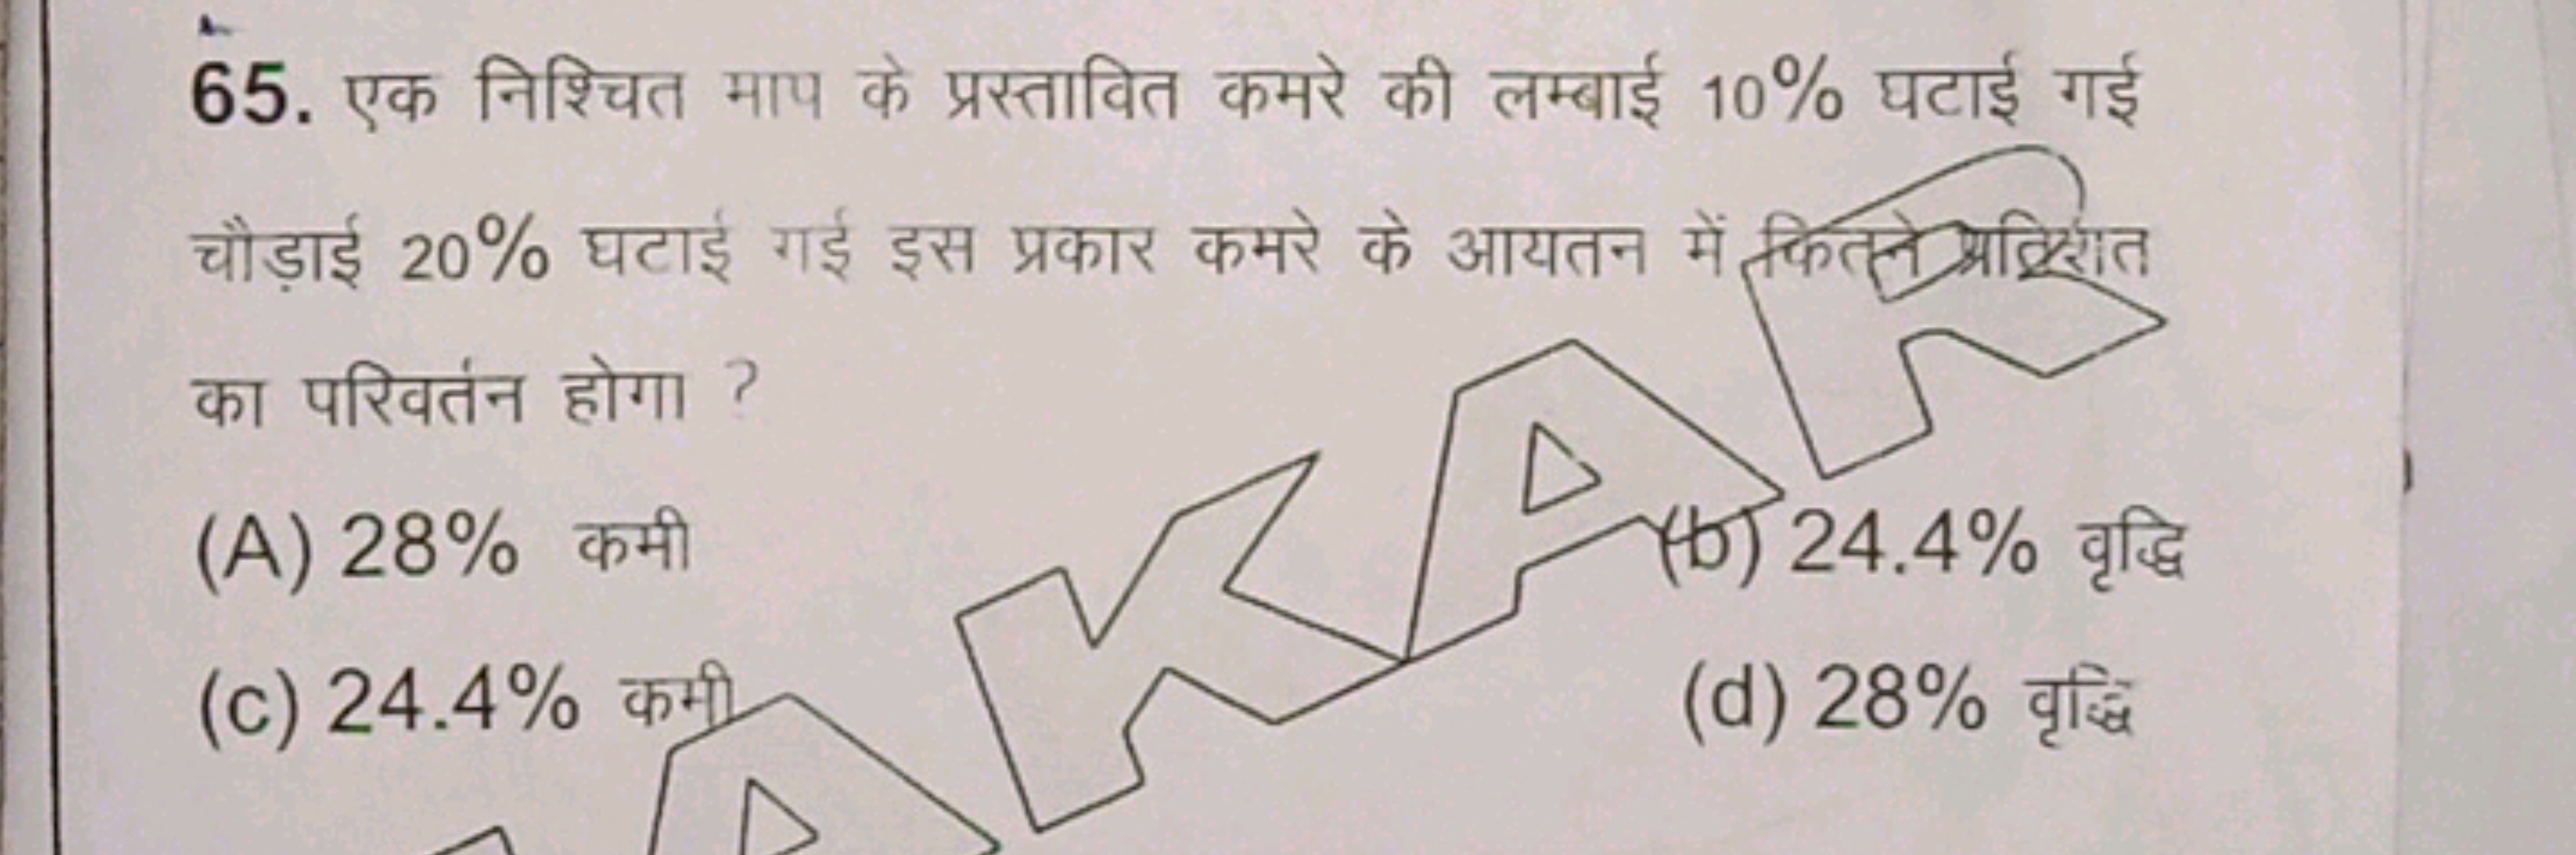 65. एक निश्चित माप के प्रस्तावित कमरे की लम्बाई 10% घटाई गई
चौड़ाई 20% घटाई गई इस प्रकार कमरे के आयतन में कितने प्रतिशत
का परिवर्तन होगा ?
(A) 28% कमी (b) 24.4% वृद्धि
(c) 24.4% कमी (d) 28% वृद्धि
AKAR